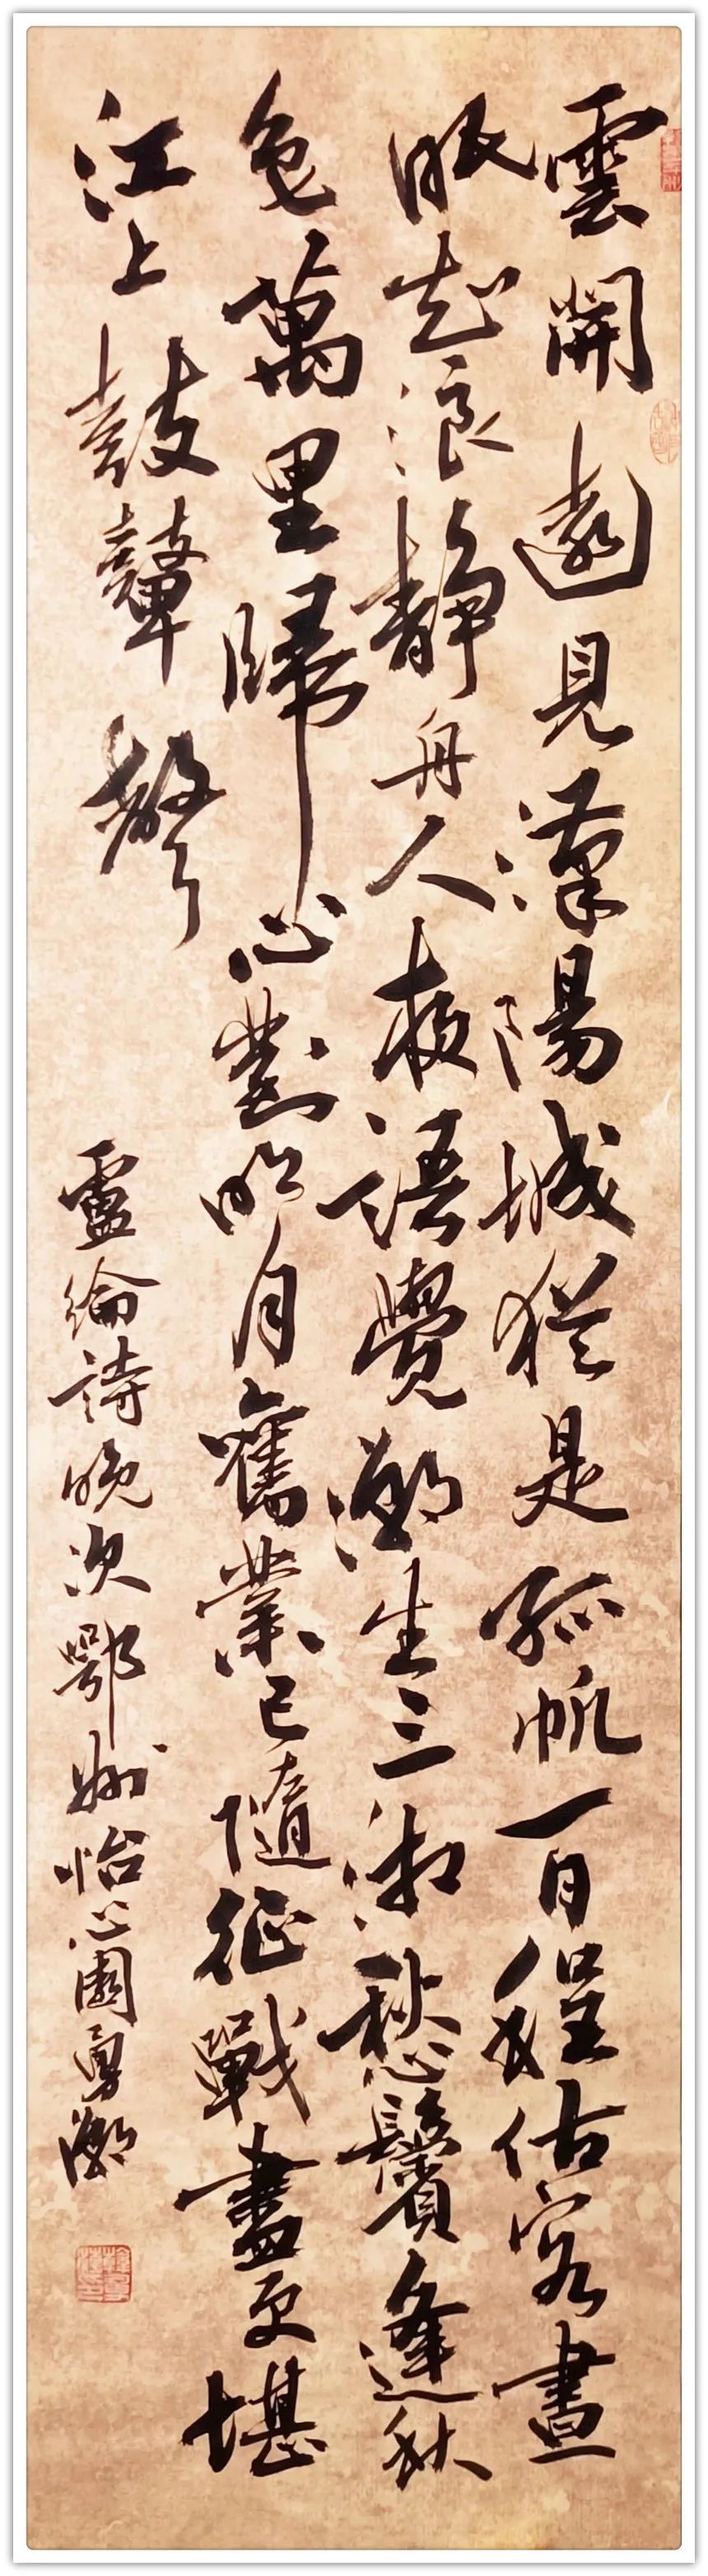 雲開遠見漢陽城猶是孤帆一日程估客晝
眠知浪靜舟人夜語覺潮生三湘愁鬢逢秋
色萬里歸心對明月舊業已隨征戰盡更堪
江上鼓鼙聲
盧綸詩晚次鄂州怡心園勇潮